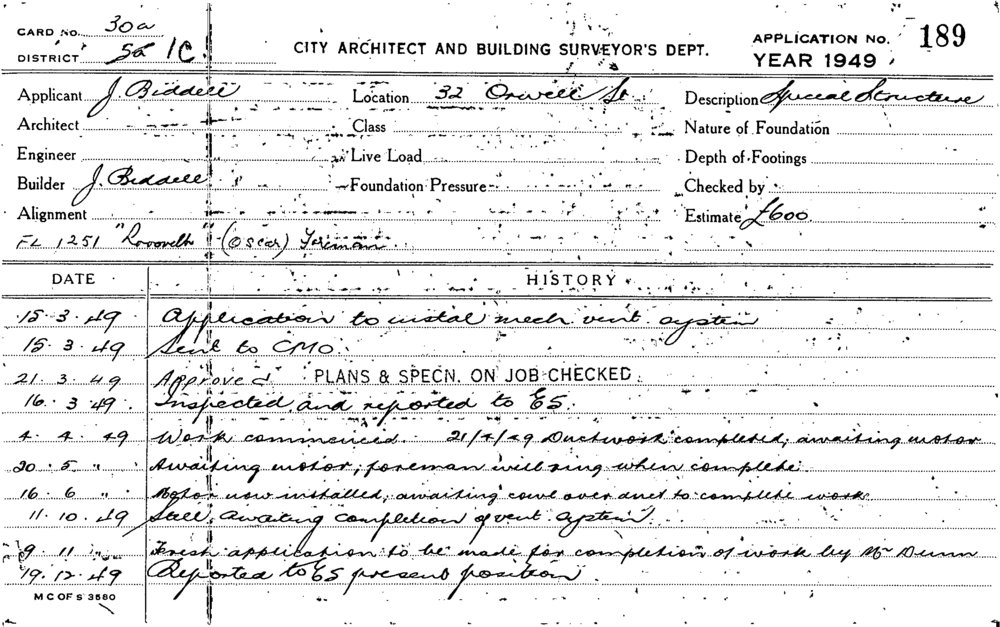 CARD NO. 30a
DISTRICT 5a 1C
CITY ARCHITECT AND BUILDING SURVEYOR'S DEPT.
APPLICATION No. 189
YEAR 1949
Applicant J. Biddell Location 32 Orwell St Description Special Structure
Architect Class Nature of Foundation
Engineer Live Load Depth of Footings
Builder J. Biddell Foundation Pressure Checked by
Alignment Estimate £600
FL 1251 (Oscar) Foreman
DATE HISTORY
15.3.49 Application to instal mech vent system
15.3.49 Sent to CMO.
21.3.49 Approved PLANS & SPECN. ON JOB CHECKED
16.3.49. Inspected and reported to ES.
4.4.49 Work commenced. 21/4/49 Ductwork completed, awaiting motor
20.5 " Awaiting motor; foreman will ring when complete.
16.6 " Motor now installed, awaiting cowl over duct to complete work.
11.10.49 Still awaiting completion of vent system
9.11 " Fresh application to be made for completion of work by Mr Dunn
19.12.49 Reported to ES present position.
M C OF S 3580